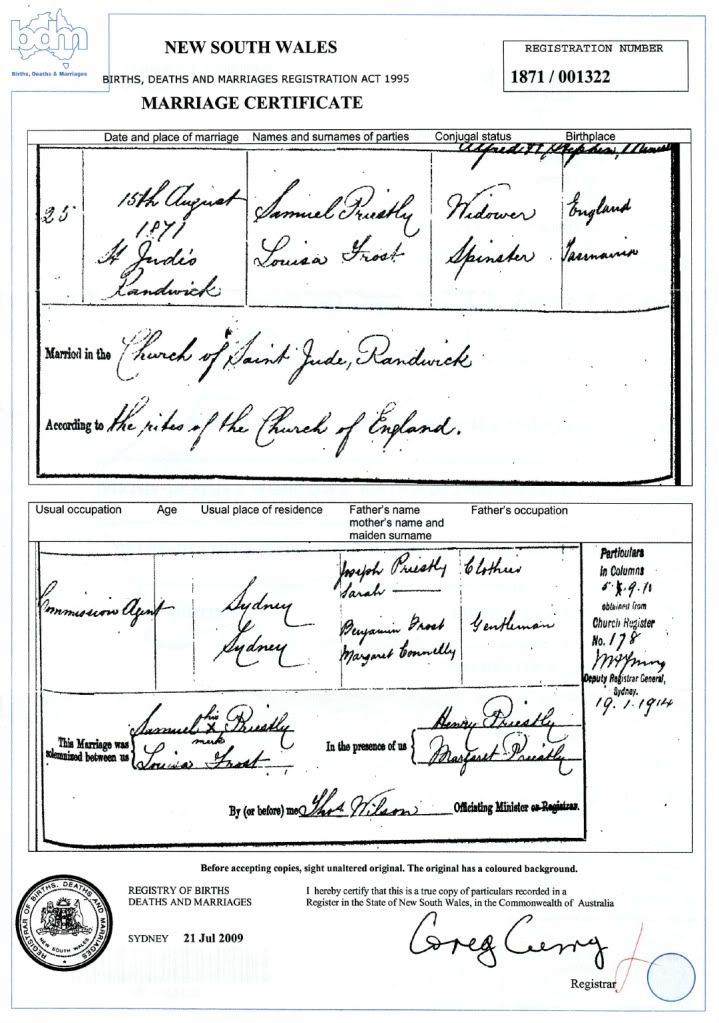 bdm
Births, Deaths & Marriages
NEW SOUTH WALES
BIRTHS, DEATHS AND MARRIAGES REGISTRATION ACT 1995
MARRIAGE CERTIFICATE
REGISTRATION NUMBER
1871 / 001322
Date and place of marriage Names and surnames of parties Conjugal status Birthplace
Alfred H. Stephen,
25 15th August Samuel Priestly Widower England
1871
St Jude's Louisa Frost Spinster Tasmania
Randwick
Married in the Church of Saint Jude, Randwick
According to the rites of the Church of England.
Usual occupation Age Usual place of residence Father's name Father's occupation
mother's name and
maiden surname
Commission Agent Sydney Joseph Priestly Clothier
Sarah
Sydney Benjamin Frost Gentleman
Margaret Connelly
Particulars
in Columns
obtained from
Church Register
No. 178
Deputy Registrar General,
Sydney.
19.1.1914
This Marriage was
solemnized between us
Samuel his x mark Priestly
Louisa Frost
In the presence of us
Henry Priestly
Margaret Priestly
By (or before) me Thos Wilson Officiating Minister or Registrar.
Before accepting copies, sight unaltered original. The original has a coloured background.
REGISTRAR OF BIRTHS, DEATHS AND MARRIAGES
NEW SOUTH WALES
REGISTRY OF BIRTHS
DEATHS AND MARRIAGES
SYDNEY 21 Jul 2009
I hereby certify that this is a true copy of particulars recorded in a
Register in the State of New South Wales, in the Commonwealth of Australia
Greg Curry
Registrar